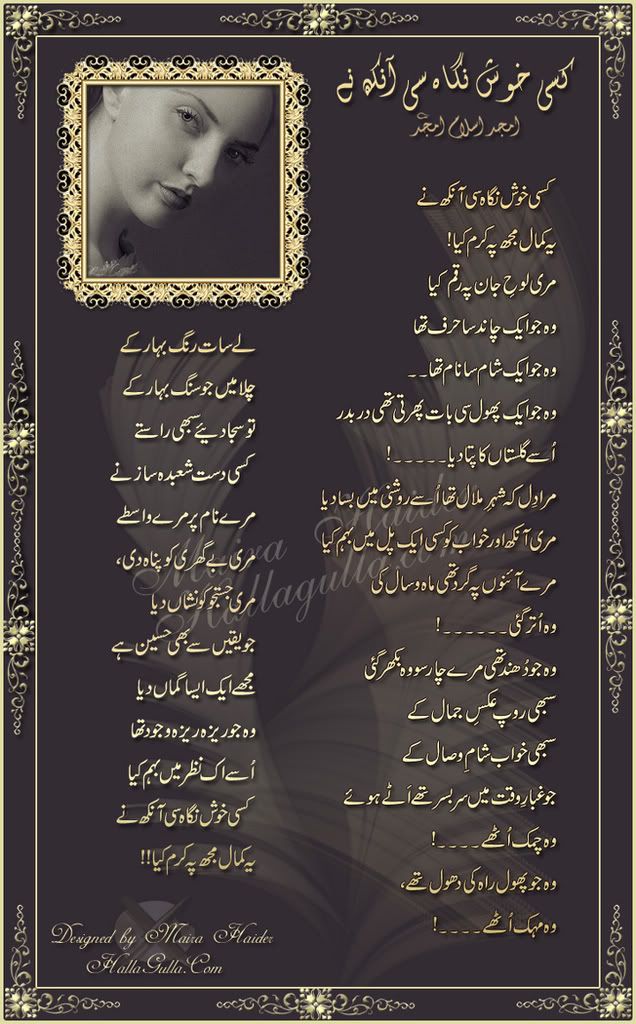 کسی خوش نگاہ سی آنکھ نے
امجد اسلام امجد
کسی خوش نگاہ سی آنکھ نے
یہ کمال مجھ پہ کرم کیا!
مری لوحِ جان پہ رقم کیا
وہ جو ایک چاند سا حرف تھا
وہ جو ایک شام سا نام تھا۔۔
وہ جو ایک پھول سی بات پھرتی تھی در بدر
اُسے گلستاں کا پتا دیا۔۔۔۔۔!
مرا دل کہ شہرِ ملال تھا اُسے روشنی میں بسا دیا
مری آنکھ اور خواب کو کسی ایک پل میں بہم کیا
مرے آئنوں پہ گرد تھی ماہ و سال کی
وہ اُتر گئی۔۔۔۔۔۔!
وہ جو دُھند تھی مرے چار سو وہ بکھر گئی
سبھی روپ عکسِ جمال کے
سبھی خواب شامِ وصال کے
جو غبارِ وقت میں سر بسر تھے اَٹے ہوئے
وہ چمک اُٹھے۔۔۔۔!
وہ جو پھول راہ کی دھول تھے،
وہ مہک اُٹھے۔۔۔۔!
لے سات رنگ بہار کے
چلا میں جو سنگ بہار کے
تو سجا دیئے سبھی راستے
کسی دست شعبدہ ساز نے
مرے نام پر مرے واسطے
مری بے گھری کو پناہ دی،
مری جستجو کو نشاں دیا
جو یقیں سے بھی حسین ہے
مجھے ایک ایسا گماں دیا
وہ جو ریزہ ریزہ وجود تھا
اُسے اک نظر میں بہم کیا
کسی خوش نگاہ سی آنکھ نے
یہ کمال مجھ پہ کرم کیا!!
Maira Haider
Hallagulla.com
Designed by Maira Haider
HallaGulla.Com